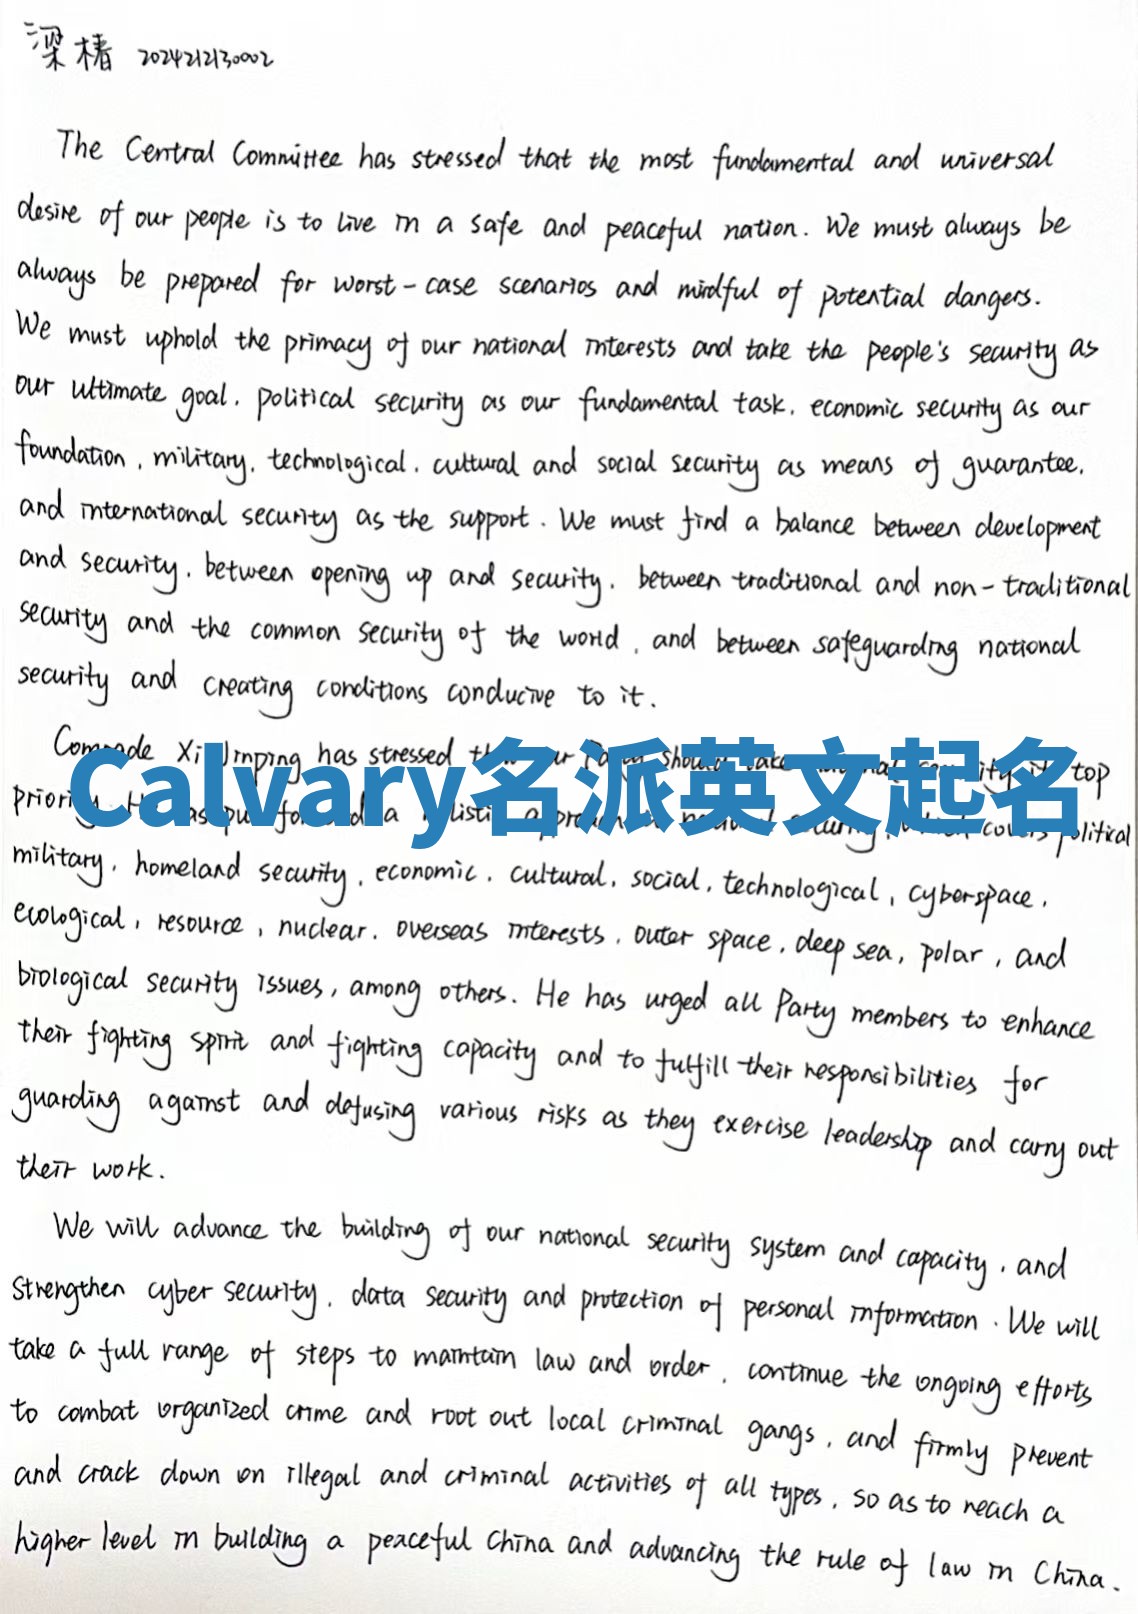 梁椿 2024212130002
The Central Committee has stressed that the most fundamental and universal
desire of our people is to live in a safe and peaceful nation. We must always be
always be prepared for worst-case scenarios and mindful of potential dangers.
We must uphold the primacy of our national interests and take the people's security as
our ultimate goal, political security as our fundamental task, economic security as our
foundation, military, technological, cultural and social security as means of guarantee,
and international security as the support. We must find a balance between development
and security, between opening up and security, between traditional and non-traditional
security and the common security of the world, and between safeguarding national
security and creating conditions conducive to it.
Comrade Xi Jinping has stressed Party should take security top
Calvary名派英文起名
priority put a covers political
military, homeland security, economic, cultural, social, technological, cyberspace,
ecological, resource, nuclear, overseas interests, outer space, deep sea, polar, and
biological security issues, among others. He has urged all Party members to enhance
their fighting spirit and fighting capacity and to fulfill their responsibilities for
guarding against and defusing various risks as they exercise leadership and carry out
their work.
We will advance the building of our national security system and capacity, and
strengthen cyber security, data security and protection of personal information. We will
take a full range of steps to maintain law and order, continue the ongoing efforts
to combat organized crime and root out local criminal gangs, and firmly prevent
and crack down on illegal and criminal activities of all types, so as to reach a
higher level in building a peaceful China and advancing the rule of law in China.